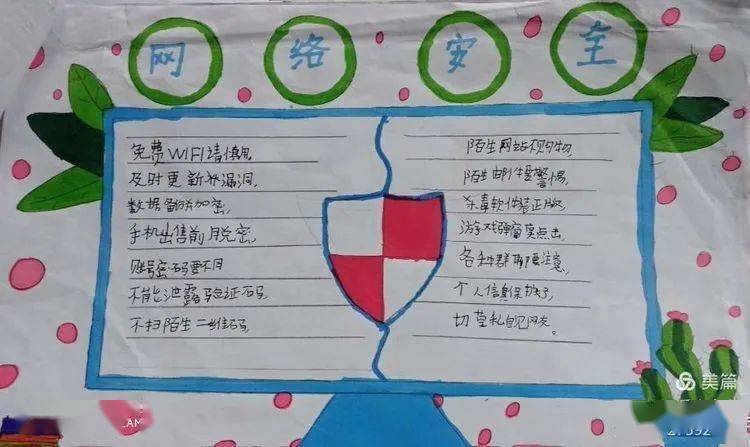 网络安全
免费WIFI请慎用,
及时更新补漏洞,
数据备份加密,
手机出售前脱密,
账号密码要不同
不能泄露验证码,
不扫陌生二维码,
陌生网站不购物,
陌生邮件提警惕,
杀毒软件装正版,
游戏弹窗莫点击,
各种群聊要注意,
个人信息保护好,
切莫私自见网友。
美篇